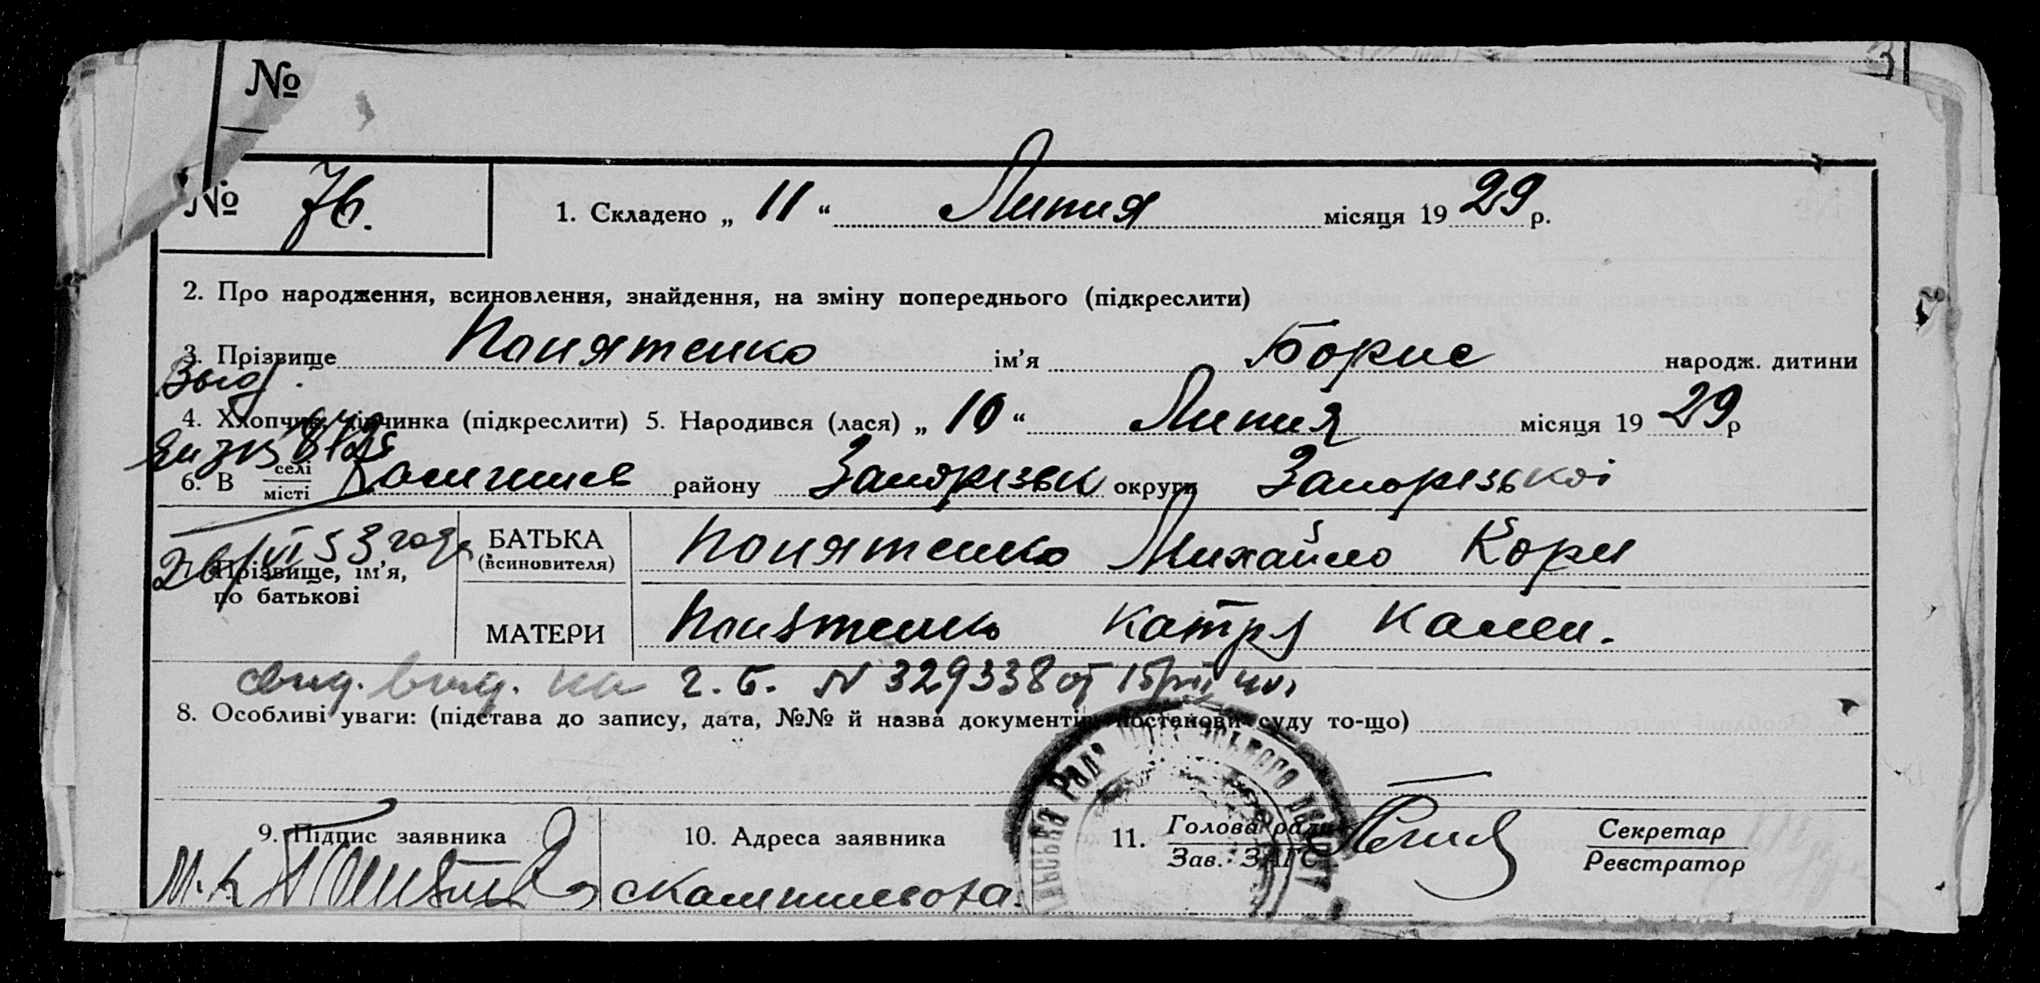 №
№ 76.
1. Складено „ 11 “ Липня місяця 19 29 р.
2. Про народження, всиновлення, знайдення, на зміну попереднього (підкреслити)
3. Прізвище Понятенко ім’я Борис народж. дитини
4. Хлопчик, дівчинка (підкреслити) 5. Народився (лася) „ 10 “ Липня місяця 19 29 р
6. В селі місті району Запорізьк округи Запорізькоі
VI 53 года
Прізвище, ім’я, по батькові
БАТЬКА (всиновителя) Понятенко Михайло Корн
МАТЕРИ Понятенко Катря Камен.
свид. выд. на г. б. N 329338 от
8. Особливі уваги: (підстава до запису, дата, №№ й назва документів, постанови суду то-що)
9. Підпис заявника
10. Адреса заявника
11. Голова ради Зав. ЗАГС
Секретар Реєстратор
М. К.